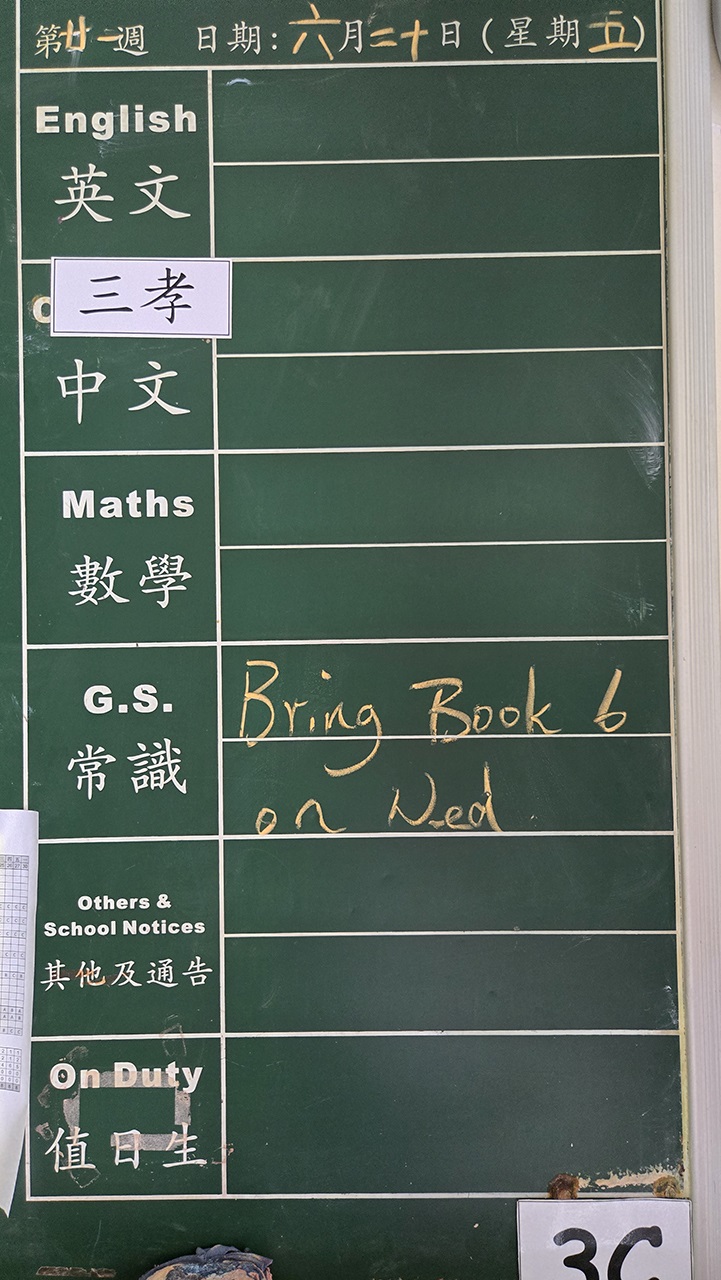 第廿一週 日期:六月二十日(星期五)
English
英文
三孝
中文
Maths
數學
G.S.
常識
Bring Book 6
on Wed
Others &
School Notices
其他及通告
On Duty
值日生
3C